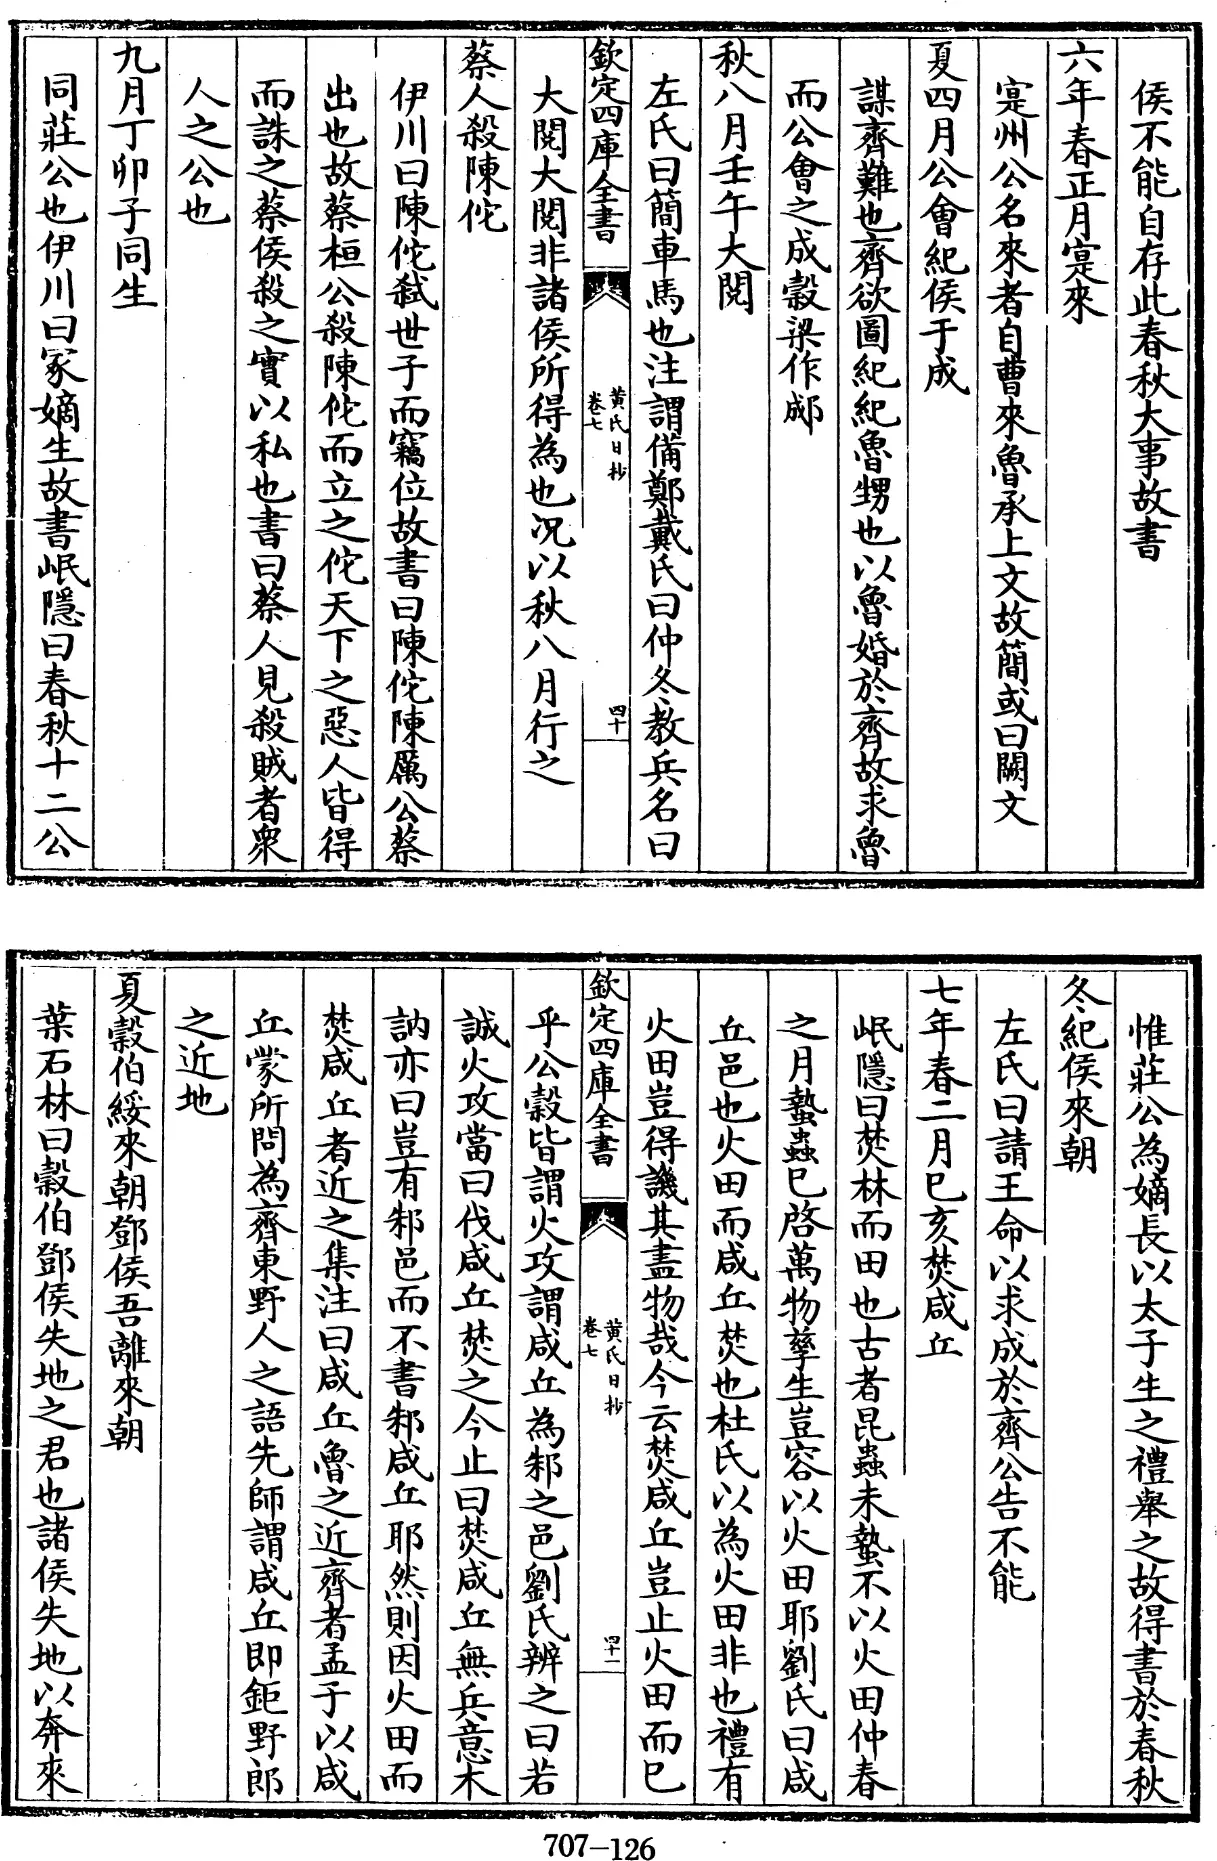 侯不能自存此春秋大事故書
六年春正月寔來
寔州公名來者自曹來魯承上文故簡或曰闕文
夏四月公會紀侯于成
謀齊難也齊欲圖紀紀魯甥也以魯婚於齊故求魯
而公會之成穀梁作郕
秋八月壬午大閱
左氏曰簡車馬也注謂備鄭戴氏曰仲冬教兵名曰
欽定四庫全書
黃氏日抄
卷七
四十
大閱大閱非諸侯所得為也況以秋八月行之
蔡人殺陳佗
伊川曰陳佗弒世子而竊位故書曰陳佗陳厲公蔡
出也故蔡桓公殺陳佗而立之佗天下之惡人皆得
而誅之蔡侯殺之實以私也書曰蔡人見殺賊者衆
人之公也
九月丁卯子同生
同莊公也伊川曰冢嫡生故書岷隱曰春秋十二公
惟莊公為嫡長以太子生之禮舉之故得書於春秋
冬紀侯來朝
左氏曰請王命以求成於齊公告不能
七年春二月巳亥焚咸丘
岷隱曰焚林而田也古者昆蟲未蟄不以火田仲春
之月蟄蟲巳啓萬物孳生豈容以火田耶劉氏曰咸
丘邑也火田而咸丘焚也杜氏以為火田非也禮有
火田豈得譏其盡物哉今云焚咸丘豈止火田而巳
欽定四庫全書
黃氏日抄
卷七
四十一
乎公穀皆謂火攻謂咸丘為邾之邑劉氏辨之曰若
誠火攻當曰伐咸丘焚之今止曰焚咸丘無兵意木
訥亦曰豈有邾邑而不書邾咸丘耶然則因火田而
焚咸丘者近之集注曰咸丘魯之近齊者孟子以咸
丘蒙所問為齊東野人之語先師謂咸丘即鉅野郎
之近地
夏穀伯綏來朝鄧侯吾離來朝
葉石林曰穀伯鄧侯失地之君也諸侯失地以奔來
707-126